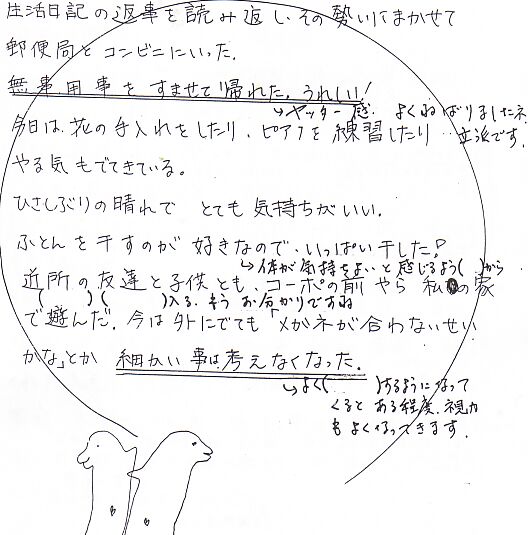 生活日記の返事を読み返し、その勢いにまかせて
郵便局とコンビニにいった。
無事、用事をすませて帰れた。うれしい!
→ヤッター感. よくねばりましたネ
今日は、花の手入れをしたり、ピアノを練習したり 立派です。
やる気もでてきている。
ひさしぶりの晴れで とても気持ちがいい。
ふとんを干すのが好きなので、いっぱい干した!
→体が気持ちよいと感じるよう( )から
近所の友達と子供とも、コーポの前やら私の家
( )( )入る、もうお分かりですね
で遊んだ。今は外にでても「メガネが合わないせい
かな」とか 細かい事は考えなくなった。
→よく( )するようになって
くると ある程度、視力
もよくなってきます。